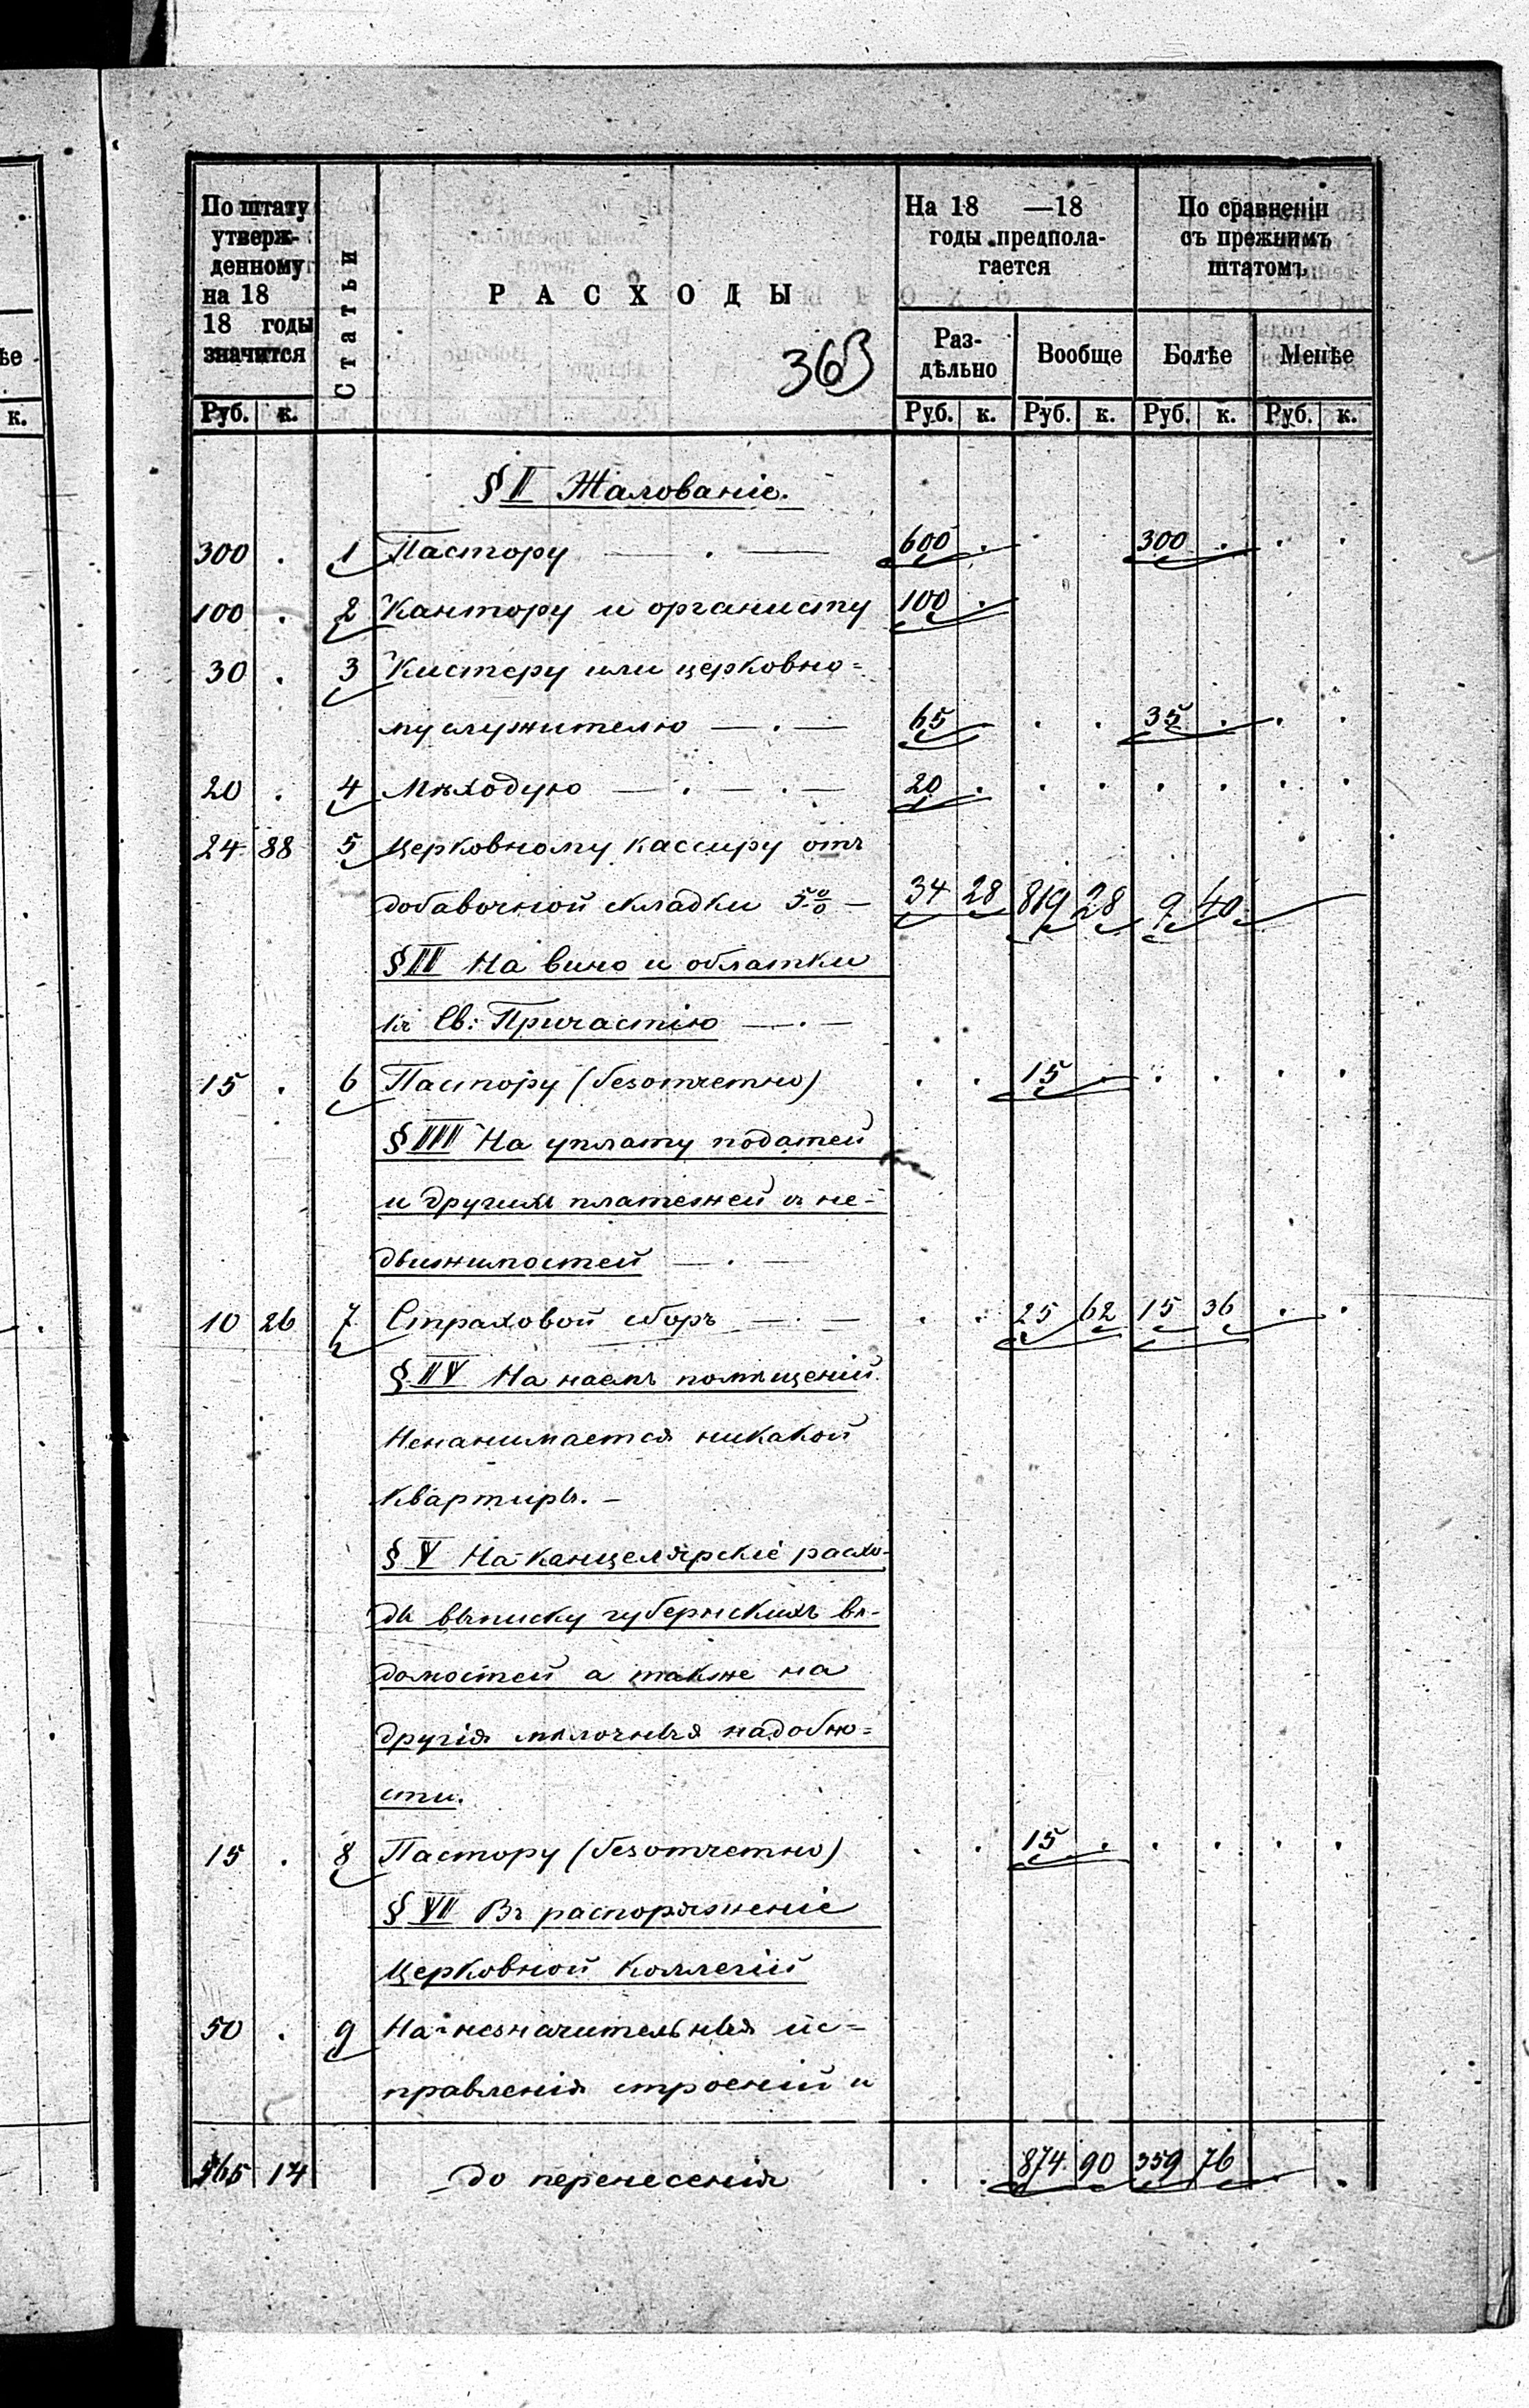 По штату
утверж-
денному
на 18
18 годы
значится
Статьи
РАСХОДЫ
363
На 18 —18
годы предпола-
гается
По сравненіи
съ прежнимъ
штатомъ
Раз-
дѣльно
Вообще
Болѣе
Менѣе
Руб. к. Руб. к. Руб. к. Руб. к. Руб. к.
ѣе
к.
§ I Жалованіе.
300 . 1 Пастору — . — 600 . . . 300 . . .
100 . 2 Кантору и органисту 100 .
30 . 3 Кистеру или церковно=
му служителю — . — 65 . . . 35 . . .
20 . 4 Мѣходую — . — . — 20 . . . . . . .
24 88 5 Церковному кассиру отъ
добавочной складки 5% — 34 28 819 28 9 40
§ II На вино и облатки
къ Св: Причастію — . —
15 . 6 Пастору (безотчетно) . . 15 . . . . .
§ III На уплату податей
и другихъ платежей съ не-
движимостей — . —
10 26 7 Страховой сборъ — . — . . 25 62 15 36 . .
§ IV На наемъ помѣщеній.
Ненанимается никакой
квартиры. —
§ V На канцелярскіе расхо-
ды выписку губернскихъ вѣ-
домостей а также на
другія мѣлочныя надобно=
сти.
15 . 8 Пастору (безотчетно) . . 15 . . . . .
§ VI Въ распоряженіе
Церковной Коллегіи
50 . 9 На незначительныя ис=
правленія строеній и
565 14 до перенесенія . . 874 90 359 76 .